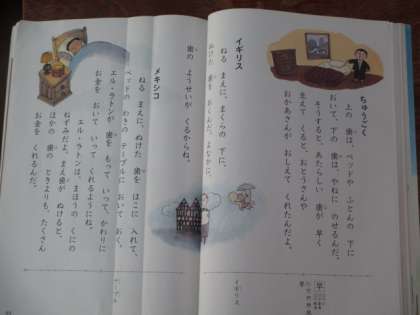 ちゅうごく
上の 歯は、ベッドや ふとんの 下に
おいて、下の 歯は、やねに のせるんだ。
そうすると、あたらしい 歯が 早く
生えて くると、おとうさんや
おかあさんが おしえて くれたんだよ。
イギリス
ねる まえに、まくらの 下に、
ぬけた 歯を おくんだ。よなかに、
歯の ようせいが くるからね。
早
イギリス
メキシコ
ねる まえに、ぬけた 歯を はこに 入れて、
ベッドの わきの テーブルに おいて おく。
エル・ラトンが 歯を もって いって、かわりに
お金を おいて いって くれるようにね。
エル・ラトンは、まほうの くにの
ねずみだよ。まえ歯が ぬけると、
ほかの 歯の ときよりも、たくさん
お金を くれるんだ。
テーブル